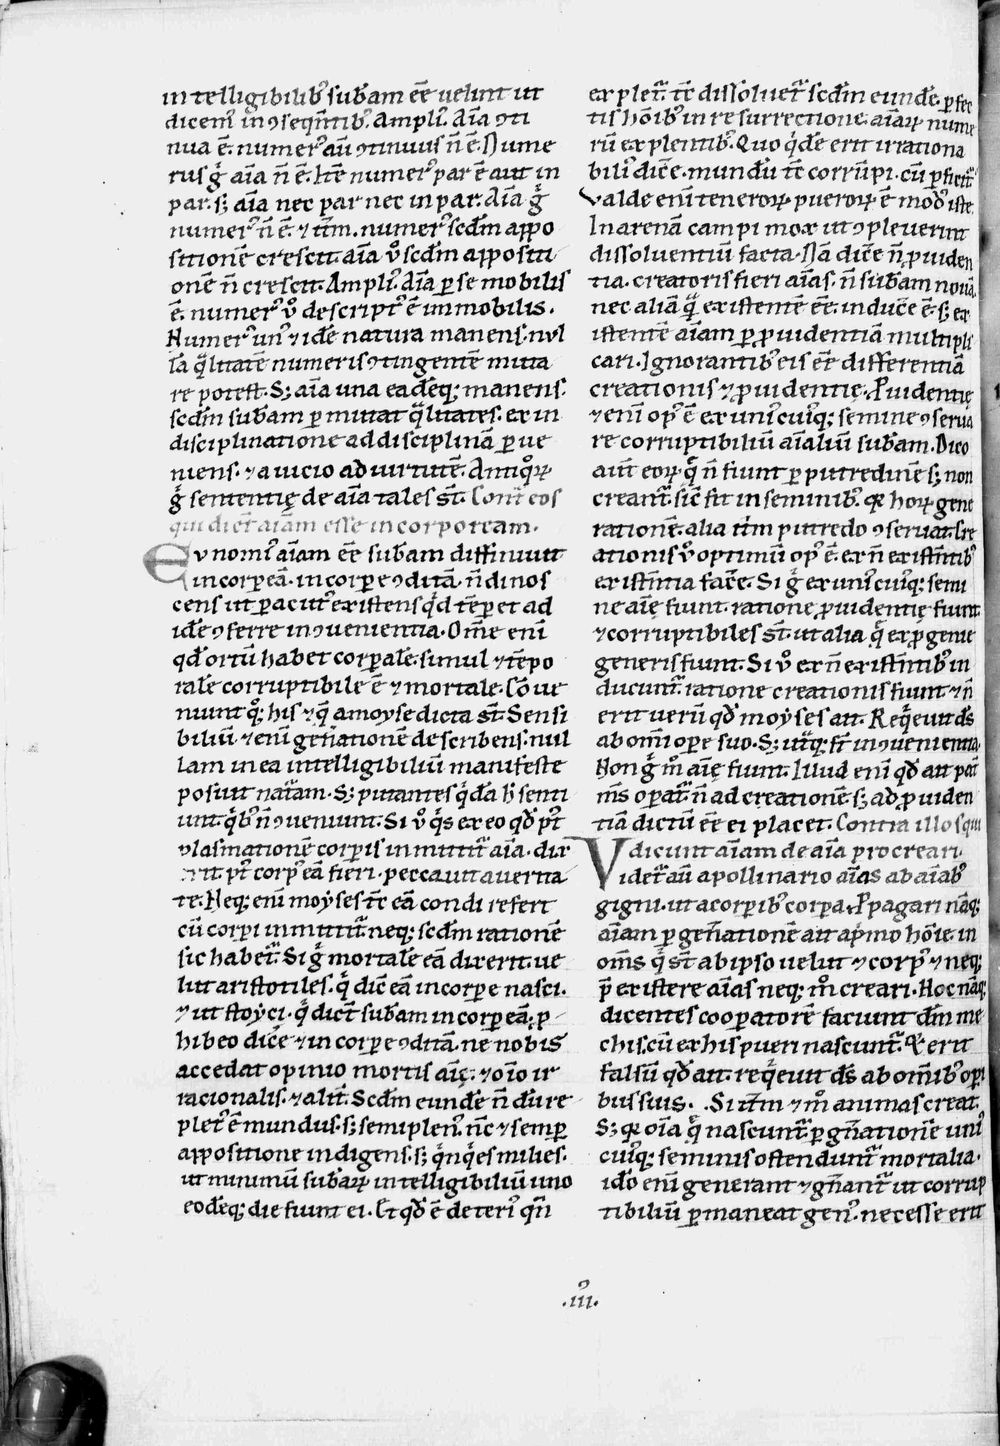 intelligibilib' subaꝫ am eē uelint ut
dicem' in ꝯseqn̄tib'. Ampli'. Aīa ꝯti
nua ē. numer' aū ꝯtinuus n̄ ē. Nume
rus gͥ aīa n̄ ē. Itē numer' par ē aut in
par. sꝫ aīa nec par nec in par. Aīa gͥ
numer' n̄ ē. ⁊ tm̄. numer' scdm̄ appo
sitionē crescit. aīa v̊ scdm̄ appositi
onē n̄ crescit. Ampli'. Aīa ꝑ se mobilis
ē. numer' v̊ descript' ē immobilis.
Numer' un' ⁊ idē natura manens. nul
la qͣlitatē numeris ꝯtingentē muta
re potest. Sꝫ aīa una eadēqꝫ manens.
scdm̄ subam ꝑmutat qͣlitates. ex in
disciplinatione ad disciplinā ꝑue
niens. ⁊ a uicio ad uirtutē. Antiqͦꝝ
gͥ sententię de aīa tales st̄. Cont̄ eos
qui dicūt aīam esse incorpoream.
Eunomi' aīam eē subam diffiniuit
incorpeā. in corpe ꝯditā. n̄ dinos
cens ut ꝑacut' existens qͥd tēꝑet ad
idē ꝯferre inꝯuenientia. Omē eni
qd̄ ortū habet corꝑalē. simul ⁊ tēpo
ralē corruptibile ē ⁊ mortale. Cōue
niunt qͦꝫ his ⁊ qͣ a moyse dicta st̄. Sensi
biliū ⁊ eni gen̄ationē describens. nul
lam in ea intelligibiliū manifeste
posuit nat̄am. Sꝫ putantes qͥdā h̄ senti
unt. qͥb' n̄ ꝯueniunt. Si v̊ qͥs ex eo qd̄ pͥt
plasmationē corꝑis inmittit̄ aīa. dix
erit pͥt corp' eā fieri. peccauit a uerita
te. Neqꝫ eni moyses tc̄ eā condi refert
cū corꝑi inmittit̄. neqꝫ scdm̄ rationē
sic habet̄. Si gͥ mortalē eā dixerit. ue
lut aristotiles. qͥ dic̄ eā in corpe nasci.
⁊ ut stoyci. qͥ dict̄ subam incorꝑeā. ꝓ
hibeo dicē ⁊ in corpe ꝯditā. ne nobis
accedat opinio mortis aīę. ⁊ oīo ir
racionalis. ⁊ alit̄. Scdm̄ eundē n̄dū re
plet' ē mundus. sꝫ semiplen'. nc̄ ⁊ semꝑ
appositione indigens. sꝫ qͥnqͥes milies.
ut minimū subaꝝ intelligibiliū uno
eodēqꝫ die fiunt ei. Et qd̄ ē deteri' qn̄
explet̄. tc̄ dissoluet̄ scdm̄ eundē. ꝑfec
tis hōib' in resurrectione. aīaꝝ nume
rū explentib'. Quo qͥdē erit irrationa
bili' dicē. mundū tc̄ corrūpi. cū ꝑficit̄
valde eni teneroꝝ pueroꝝ ē mod' iste.
In arenā campi mox ut ꝯpleuerint
dissoluentiū facta. Nā dicē n̄ ꝓuiden
tia. creatoris fieri aīas. n̄ subam nouā
nec aliā qͣ existentē eē. inducē ē. sꝫ ex
istentē aīam ꝑ ꝓuidentiā multipli
cari. Ignorantib' eis eē differentiā
creationis ⁊ ꝓuidentię. Puidentię
⁊ eni op' ē ex uni'cui'qꝫ semine ꝯserua
re corruptibiliū aīaliū subam. Dico
aut̄ eoꝝ. qͥ n̄ fiunt ꝑ putredinē sꝫ non
creant̄. sic̄ fit in seminib'. qꝛ hoꝝ gene
rationē. alia tm̄ putredo ꝯseruat. Cre
ationis v̊ optimū op' ē. ex n̄ existn̄tib'
existn̄tia facē. Si gͥ ex uni'cui'qꝫ semi
ne aīę fiunt. ratione ꝓuidentię fiunt
⁊ corruptibiles st̄. ut alia qͥ ex ꝓgenie
generis fiunt. Si v̊ ex n̄ existn̄tib' in
ducunt̄. ratione creationis fiunt ⁊ n̄
erit uerū qd̄ moyses ait. Reqͥeuit ds̄
ab omi opere suo. Sꝫ ut̄qꝫ st̄ inꝯuenientia.
Non gͥ m̊ aīę fiunt. Illud eni qd̄ ait pat̄
m̄s oꝑat̄. n̄ ad creationē. sꝫ ad ꝓuiden
tiā dictū eē ei placet. Contra illos qui
dicunt aīam de aīa procreari.
Videt̄ aū apollinario aīas ab aīab'
gigni. ut a corꝑib' corꝑa. Ppagari nāqꝫ
aīam ꝑ gen̄ationē ait a pͥmo hōīe. in
om̄s qͥ st̄ ab ipso uelut ⁊ corp' ⁊ neqꝫ
p̄existere aīas neqꝫ m̊ creari. Hoc nāqꝫ
dicentes cooꝑatorē faciunt dm̄ me
chis. cū ex his pueri nascunt̄. Qꝛ erit
falsū qd̄ ait. reqͥeuit ds̄ ab om̄ib' oꝑi
bus suis. Si it̄m ⁊ m̊ animas creat.
Sꝫ qꝛ oīa qͥ nascunt̄ ꝑ gn̄ationē uni'
cui'qꝫ seminis ostendunt̄ mortalia.
idō eni generant ⁊ gn̄ant̄ ut corrup
tibiliū ꝑmaneat gen'. necesse erit
.iii.